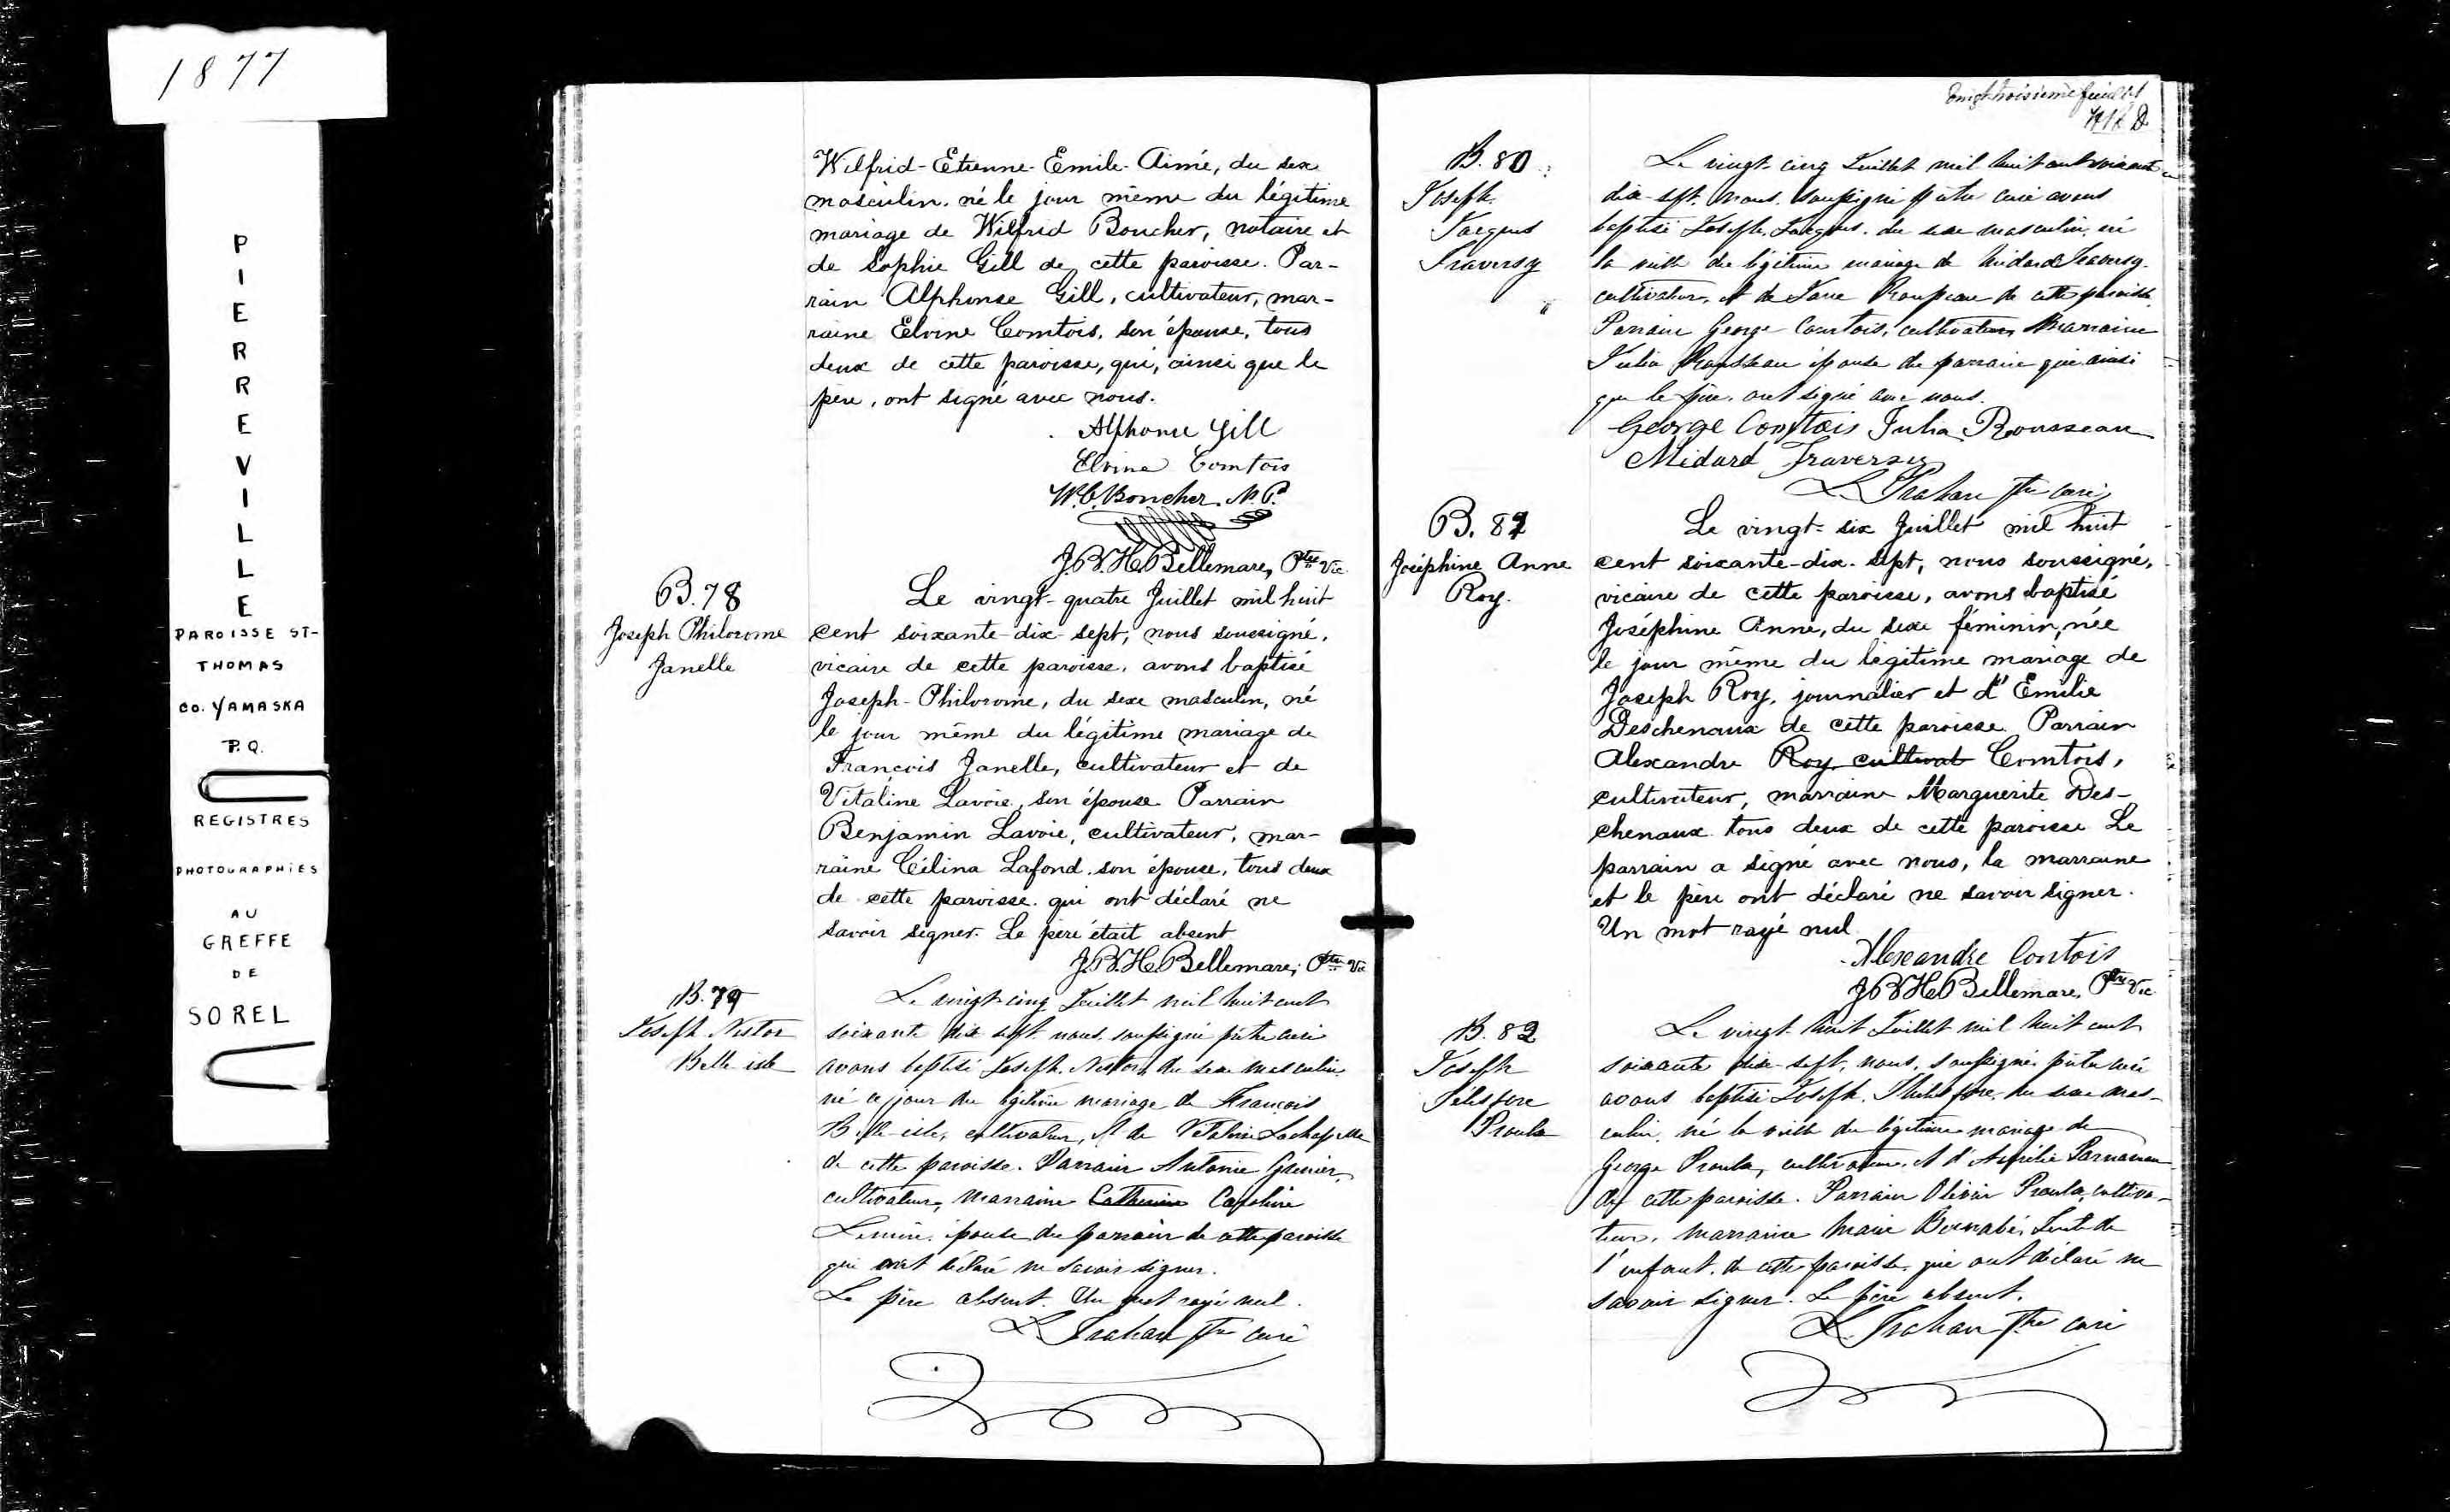 1877
PIERREVILLE
PAROISSE ST-
THOMAS
CO. YAMASKA
P.Q.
REGISTRES
PHOTOGRAPHIES
AU
GREFFE
DE
SOREL
Wilfrid-Etienne-Emile-Aimé, du sexe
masculin, né le jour même du légitime
mariage de Wilfrid Boucher, notaire et
de Sophie Gill de cette paroisse. Par-
rain Alphonse Gill, cultivateur, mar-
raine Elvine Comtois, son épouse, tous
deux de cette paroisse, qui, ainsi que le
père, ont signé avec nous.
Alphonse Gill
Elvine Comtois
W.C. Boucher N.P.
J.B.H. Bellemare, Ptre Vic.
B. 78
Joseph Philorome
Janelle
Le vingt-quatre Juillet mil huit
cent soixante-dix-sept, nous soussigné,
vicaire de cette paroisse, avons baptisé
Joseph-Philorome, du sexe masculin, né
le jour même du légitime mariage de
François Janelle, cultivateur et de
Vitaline Lavoie, son épouse. Parrain
Benjamin Lavoie, cultivateur, mar-
raine Célina Lafond, son épouse, tous deux
de cette paroisse qui ont déclaré ne
savoir signer. Le père était absent
J.B.H. Bellemare, Ptre Vic
B. 79
Joseph Nestor
Belle-isle
Le vingt-cinq Juillet mil huit cent
soixante dix sept nous, soussigné prêtre curé
avons baptisé Joseph, Nestor, du sexe masculin
né ce jour du légitime mariage de François
Belle-isle, cultivateur, et de Vitaline Lachapelle
de cette paroisse. Parrain Antonie
cultivateur, Marraine Catherine Caroline
épouse du parrain de cette paroisse
qui ont déclaré ne savoir signer.
Le père absent. Un mot rayé nul.
L. Trahan Ptre curé
troisième feuillet
B. 80
Joseph
Jacques
Traversy
Le vingt-cinq Juillet mil huit cent soixante
dix-sept, nous, soussigné prêtre curé avons
baptisé Joseph, Jacques, du sexe masculin, né
la veille du légitime mariage de Médard Traversy
cultivateur, et de de cette paroisse.
Parrain George Courtois, cultivateur, Marraine
Julia Rousseau épouse du parrain qui ainsi
que le père, ont signé avec nous.
George Comtois Julia Rousseau
Médard Traversy
L. Trahan Ptre curé
B. 81
Joséphine Anne
Roy.
Le vingt-six Juillet mil huit
cent soixante-dix-sept, nous soussigné,
vicaire de cette paroisse, avons baptisé
Joséphine Anne, du sexe féminin, née
le jour même du légitime mariage de
Joseph Roy, journalier et d'Emilie
Deschenaux de cette paroisse. Parrain
Alexandre Roy cultivat Comtois,
cultivateur, marraine Marguerite Des-
chenaux tous deux de cette paroisse. Le
parrain a signé avec nous, la marraine
et le père ont déclaré ne savoir signer.
Un mot rayé nul
Alexandre Contois
J.B.H. Bellemare, Ptre Vic
B. 82
Joseph
Télesfore
Proulx
Le vingt-huit Juillet mil huit cent
soixante dix-sept, nous, soussigné, prêtre curé
avons baptisé Joseph, du sexe mas-
culin, né la veille du légitime mariage de
George Proulx, cultivateur, et d'Aurélie
de cette paroisse. Parrain Olivier Proulx, cultiva-
teur, marraine Marie Bernabé, tante de
l'enfant, de cette paroisse, qui ont déclaré ne
savoir signer. Le père absent.
L. Trahan Ptre curé